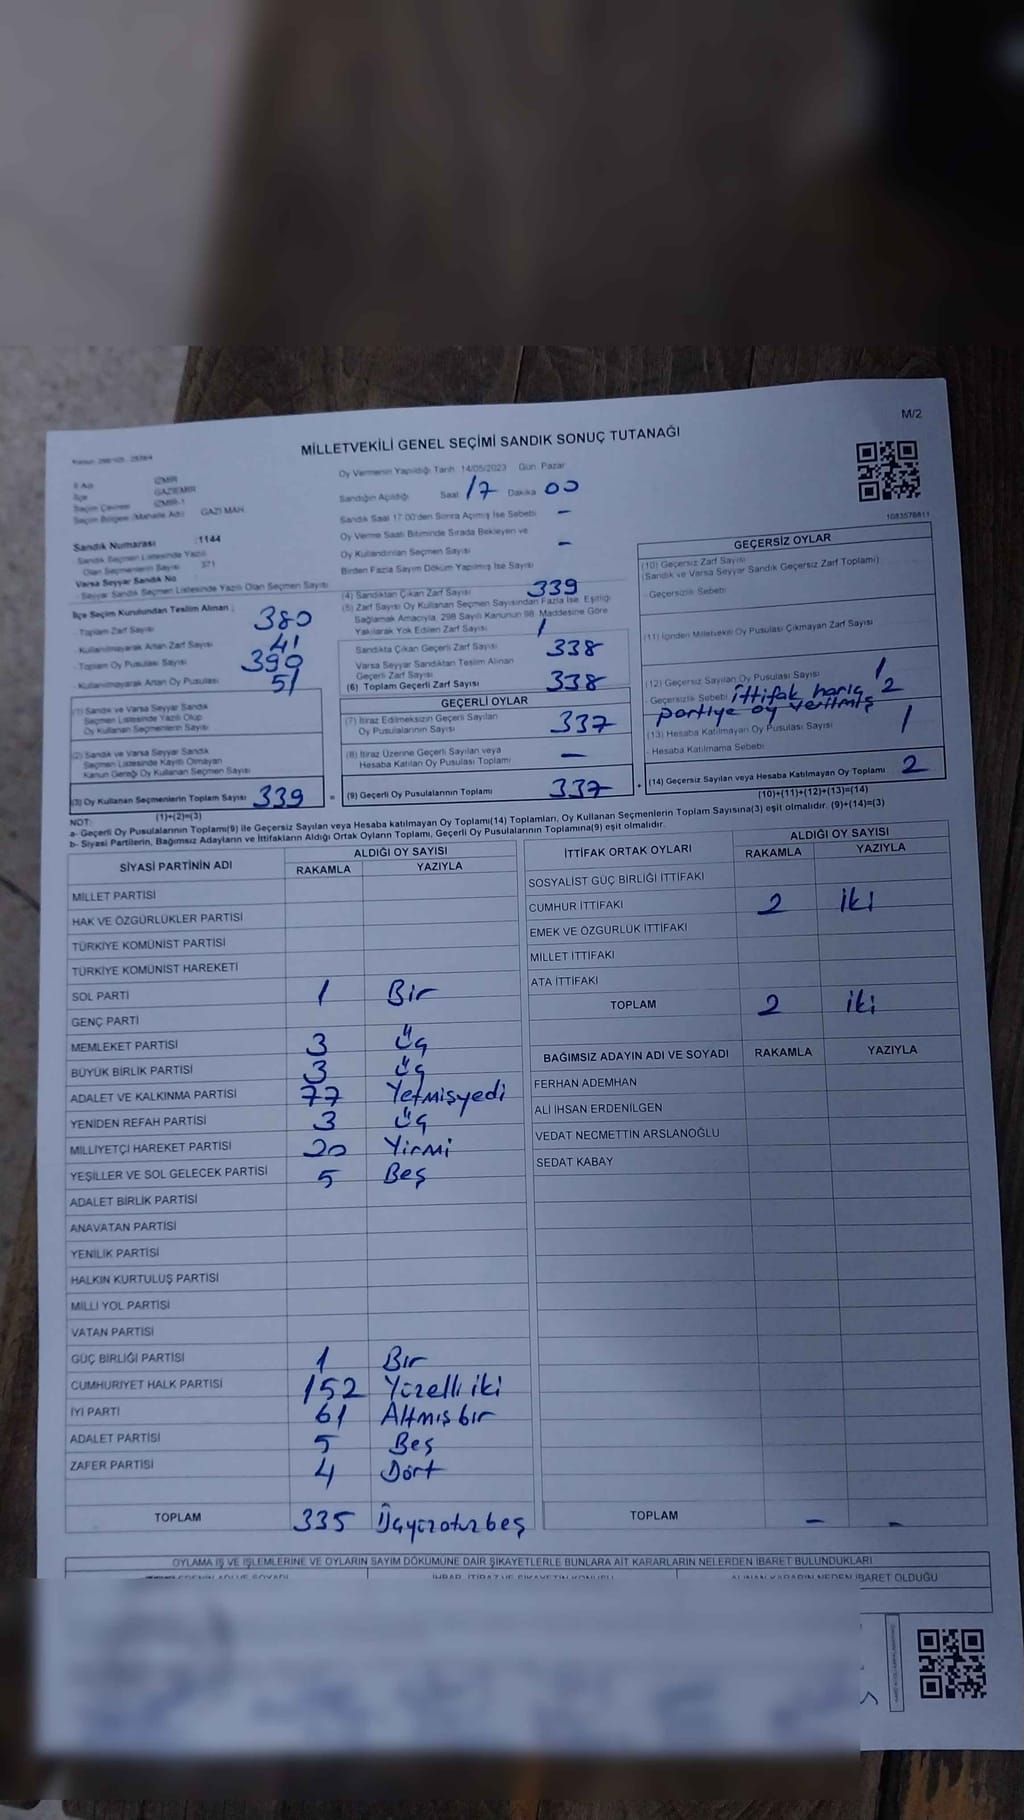 M/2
MİLLETVEKİLİ GENEL SEÇİMİ SANDIK SONUÇ TUTANAĞI
İl Adı İZMİR
İlçe GAZİEMİR
Seçim Çevresi İZMİR-1
Seçim Bölgesi (Mahalle Adı) GAZİ MAH.
Sandık Numarası :1144
Sandık Seçmen Listesinde Yazılı
Olan Seçmenlerin Sayısı 371
Varsa Seyyar Sandık No
- Seyyar Sandık Seçmen Listesinde Yazılı Olan Seçmen Sayısı
İlçe Seçim Kurulundan Teslim Alınan :
- Toplam Zarf Sayısı 380
- Kullanılmayarak Artan Zarf Sayısı 41
- Toplam Oy Pusulası Sayısı 390
- Kullanılmayarak Artan Oy Pusulası 51
(1) Sandık ve Varsa Seyyar Sandık
Seçmen Listesinde Yazılı Olup
Oy Kullanan Seçmenlerin Sayısı
(2) Sandık ve Varsa Seyyar Sandık
Seçmen Listesinde Kayıtlı Olmayan
Kanun Gereği Oy Kullanan Seçmen Sayısı
(3) Oy Kullanan Seçmenlerin Toplam Sayısı 339
(1)+(2)=(3)
Oy Vermenin Yapıldığı Tarih 14/05/2023 Gün Pazar
Sandığın Açıldığı Saat 17 Dakika 00
Sandık Saat 17:00'den Sonra Açılmış İse Sebebi -
Oy Verme Saati Bitiminde Sırada Bekleyen ve
Oy Kullandırılan Seçmen Sayısı -
Birden Fazla Sayım Döküm Yapılmış İse Sayısı
(4) Sandıktan Çıkan Zarf Sayısı 339
(5) Zarf Sayısı Oy Kullanan Seçmen Sayısından Fazla İse, Eşitliği
Sağlamak Amacıyla, 298 Sayılı Kanunun 98. Maddesine Göre
Yakılarak Yok Edilen Zarf Sayısı 1
Sandıkta Çıkan Geçerli Zarf Sayısı 338
Varsa Seyyar Sandıktan Teslim Alınan
Geçerli Zarf Sayısı
(6) Toplam Geçerli Zarf Sayısı 338
GEÇERLİ OYLAR
(7) İtiraz Edilmeksizin Geçerli Sayılan
Oy Pusulalarının Sayısı 337
(8) İtiraz Üzerine Geçerli Sayılan veya
Hesaba Katılan Oy Pusulası Toplamı -
= (9) Geçerli Oy Pusulalarının Toplamı 337
1083578811
GEÇERSİZ OYLAR
(10) Geçersiz Zarf Sayısı
(Sandık ve Varsa Seyyar Sandık Geçersiz Zarf Toplamı)
- Geçersizlik Sebebi
(11) İçinden Milletvekili Oy Pusulası Çıkmayan Zarf Sayısı
(12) Geçersiz Sayılan Oy Pusulası Sayısı 1
Geçersizlik Sebebi ittifak hariç 2
partiye oy verilmiş
(13) Hesaba Katılmayan Oy Pusulası Sayısı 1
- Hesaba Katılmama Sebebi
+ (14) Geçersiz Sayılan veya Hesaba Katılmayan Oy Toplamı 2
(10)+(11)+(12)+(13)=(14)
NOT:
a- Geçerli Oy Pusulalarının Toplamı(9) ile Geçersiz Sayılan veya Hesaba katılmayan Oy Toplamı(14) Toplamları, Oy Kullanan Seçmenlerin Toplam Sayısına(3) eşit olmalıdır. (9)+(14)=(3)
b- Siyasi Partilerin, Bağımsız Adayların ve İttifakların Aldığı Ortak Oyların Toplamı, Geçerli Oy Pusulalarının Toplamına(9) eşit olmalıdır.
SİYASİ PARTİNİN ADI ALDIĞI OY SAYISI
RAKAMLA YAZIYLA
MİLLET PARTİSİ
HAK VE ÖZGÜRLÜKLER PARTİSİ
TÜRKİYE KOMÜNİST PARTİSİ
TÜRKİYE KOMÜNİST HAREKETİ
SOL PARTİ 1 Bir
GENÇ PARTİ
MEMLEKET PARTİSİ 3 Üç
BÜYÜK BİRLİK PARTİSİ 3 Üç
ADALET VE KALKINMA PARTİSİ 77 Yetmişyedi
YENİDEN REFAH PARTİSİ 3 Üç
MİLLİYETÇİ HAREKET PARTİSİ 20 Yirmi
YEŞİLLER VE SOL GELECEK PARTİSİ 5 Beş
ADALET BİRLİK PARTİSİ
ANAVATAN PARTİSİ
YENİLİK PARTİSİ
HALKIN KURTULUŞ PARTİSİ
MİLLİ YOL PARTİSİ
VATAN PARTİSİ
GÜÇ BİRLİĞİ PARTİSİ 1 Bır
CUMHURİYET HALK PARTİSİ 152 Yüzelli iki
İYİ PARTİ 61 Altmış bır
ADALET PARTİSİ 5 Beş
ZAFER PARTİSİ 4 Dört
TOPLAM 335 Üçyüzotuzbeş
İTTİFAK ORTAK OYLARI ALDIĞI OY SAYISI
RAKAMLA YAZIYLA
SOSYALİST GÜÇ BİRLİĞİ İTTİFAKI
CUMHUR İTTİFAKI 2 iki
EMEK VE ÖZGÜRLÜK İTTİFAKI
MİLLET İTTİFAKI
ATA İTTİFAKI
TOPLAM 2 iki
BAĞIMSIZ ADAYIN ADI VE SOYADI RAKAMLA YAZIYLA
FERHAN ADEMHAN
ALİ İHSAN ERDENİLGEN
VEDAT NECMETTİN ARSLANOĞLU
SEDAT KABAY
TOPLAM - -
OYLAMA İŞ VE İŞLEMLERİNE VE OYLARIN SAYIM DÖKÜMÜNE DAİR ŞİKAYETLERLE BUNLARA AİT KARARLARIN NELERDEN İBARET BULUNDUKLARI
İHBAR, İTİRAZ VE ŞİKAYETİN KONUSU ALINAN KARARIN NEDEN İBARET OLDUĞU